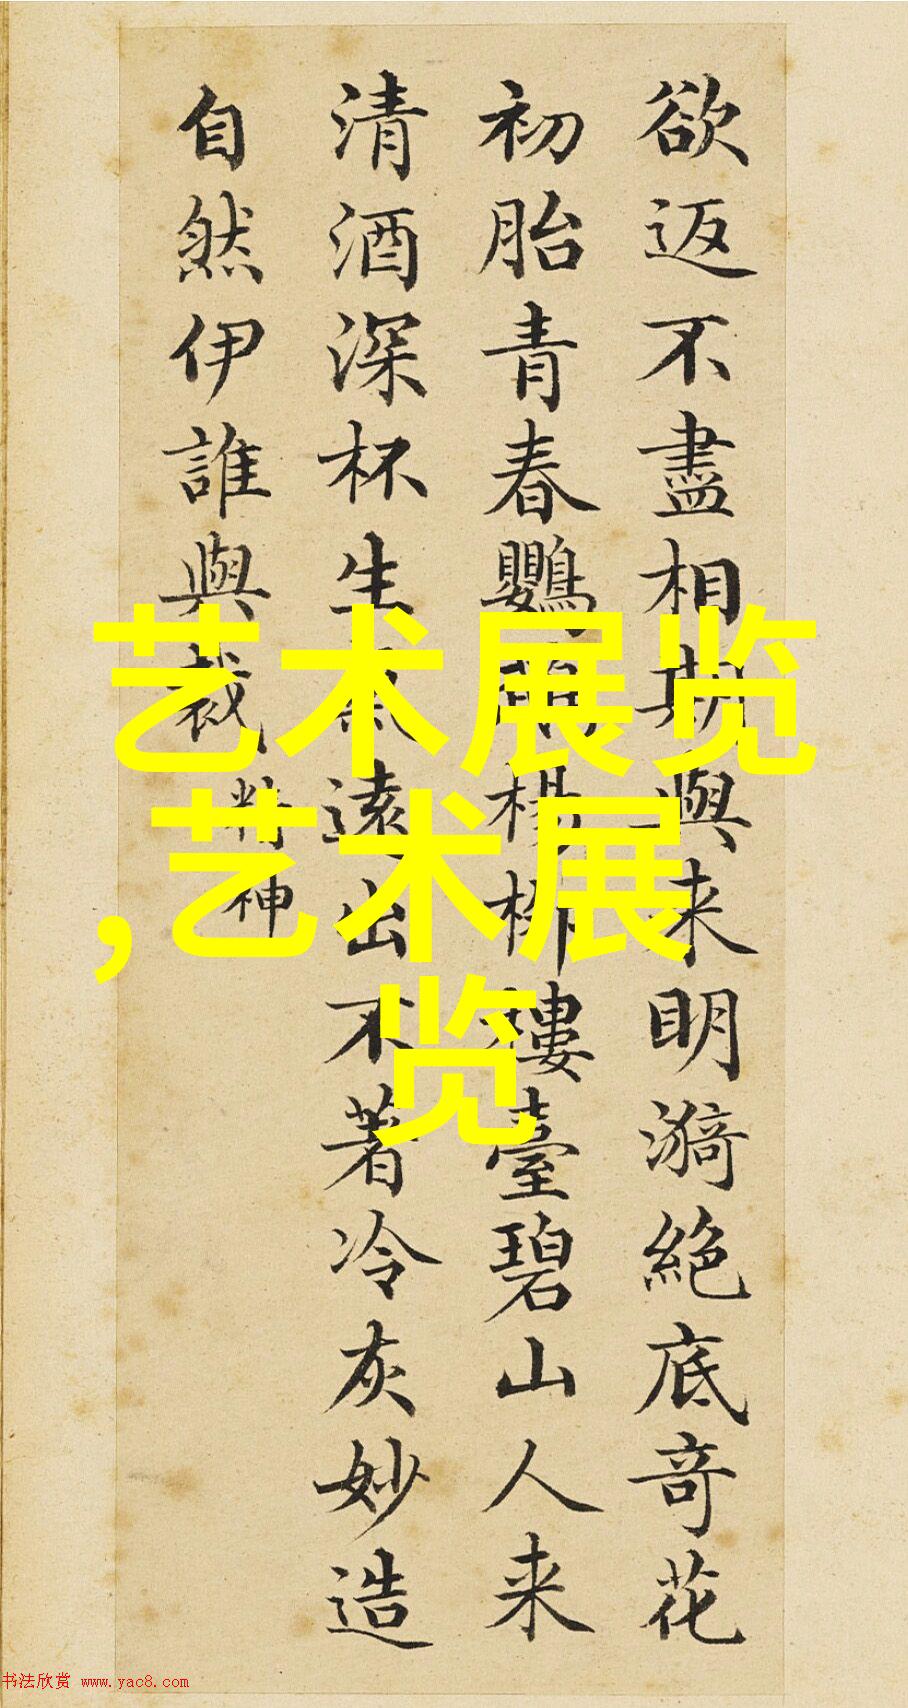 欲返不盡相期與来明漪絶底奇花
初胎青春鸚鵡楊柳樓臺碧山人来
清酒深杯生氣遠出不著冷灰妙造
自然伊誰與裁
精神
艺术展览
,艺术展
览
书法欣赏 www.yac8.com